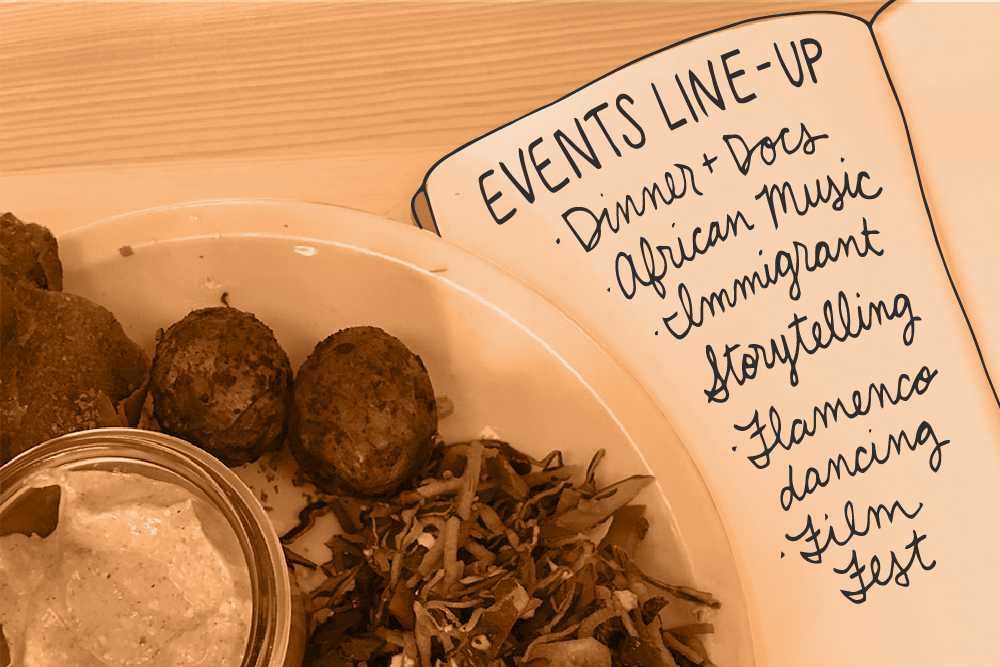 EVENTS LINE-UP
· Dinner + Docs
· African Music
· Immigrant
Storytelling
· Flamenco
dancing
· Film
Fest